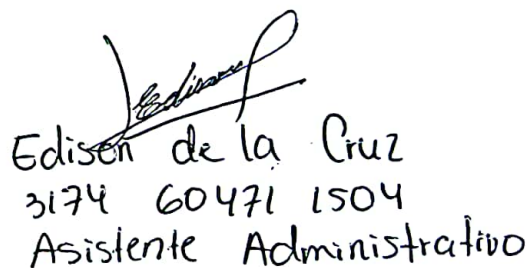 Edison
Edison de la Cruz
3174 60471 1504
Asistente Administrativo